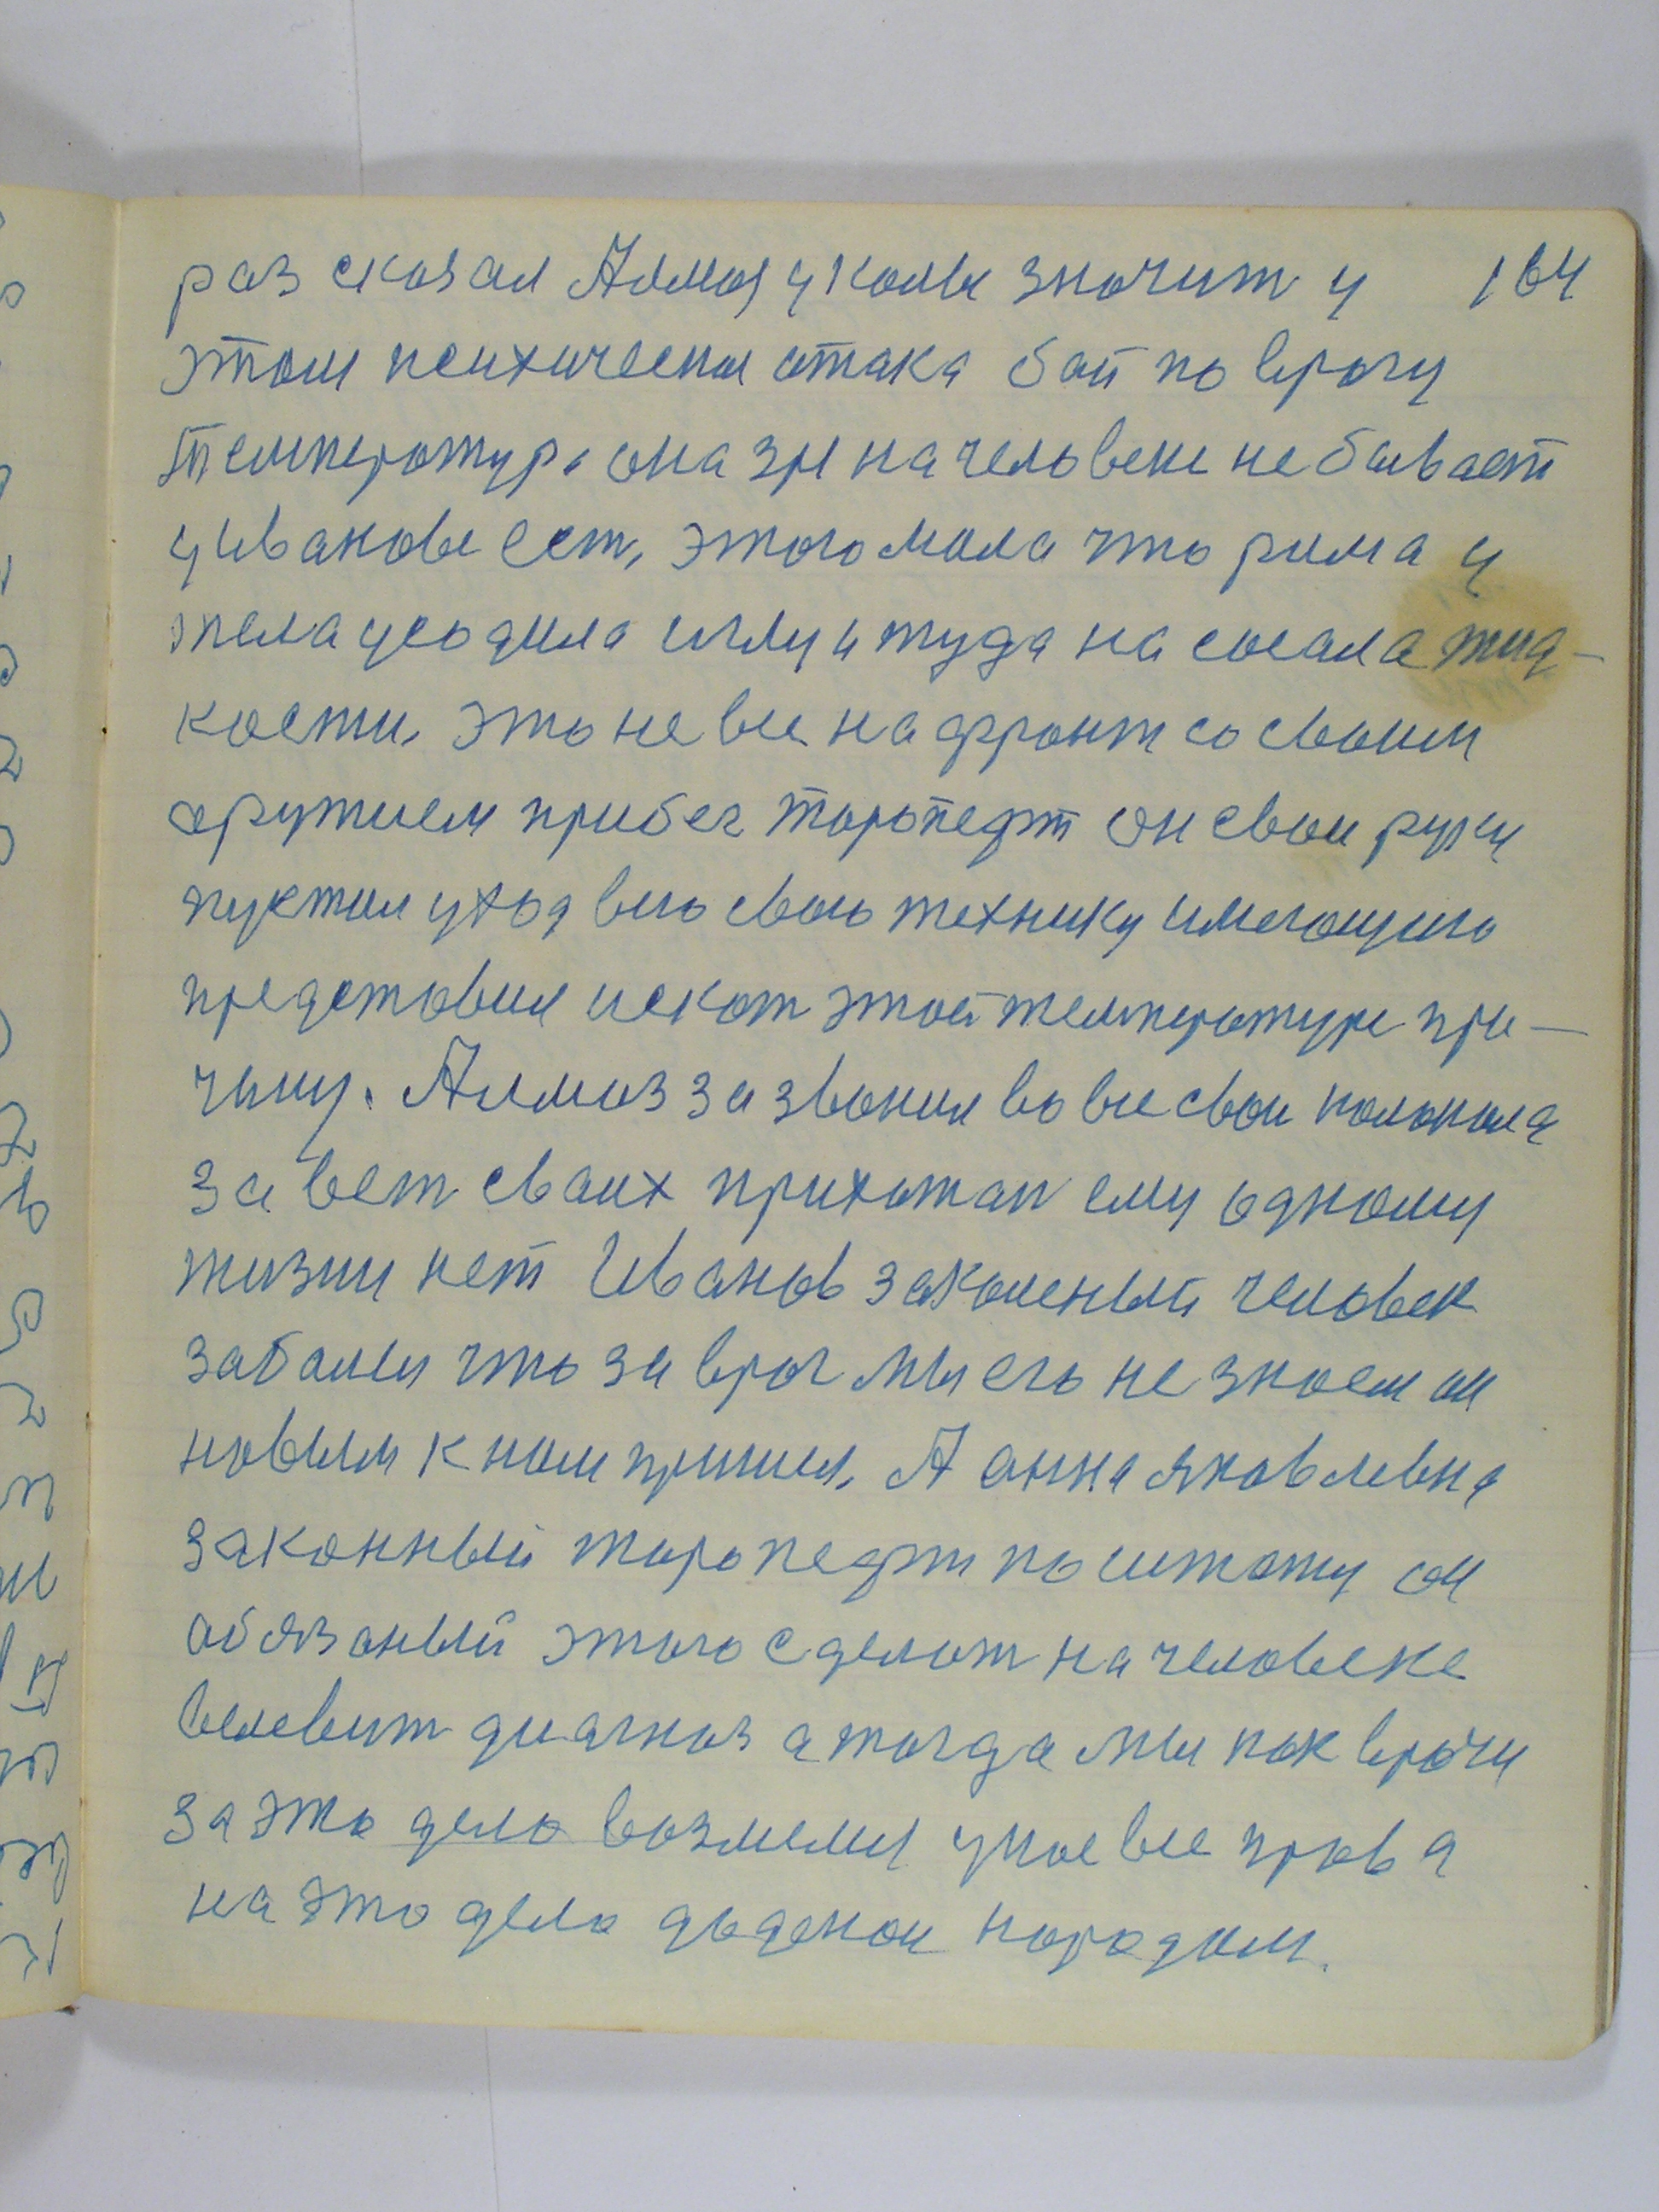 раз сказал Алмаз уколы значит у 164
этом психическая атака бой по врагу
температура она зря на человеке не бывает
у Иванове ест, этого мала что рима у
тела уводила иглу и туда насосала жид-
кости, это не все на фронт со своим
оружием прибег торопефт он свои руки
пустил у ход всю свою технику имеющию
представил искат этой температуре при-
чину. Алмаз зазвонил во все свои колокола
завет своих прихожан ему одному
жизни нет Иванов законеный человек
заболел что за враг мы его не знаем он
новым к нам пришел, А анна яковлевна
законный торопефт по штату он
обязаный этого сделат на человеке
виевит диагноз а тогда мы как врачи
за это дело возмемся у нас все права
на это дело даденаи народом.